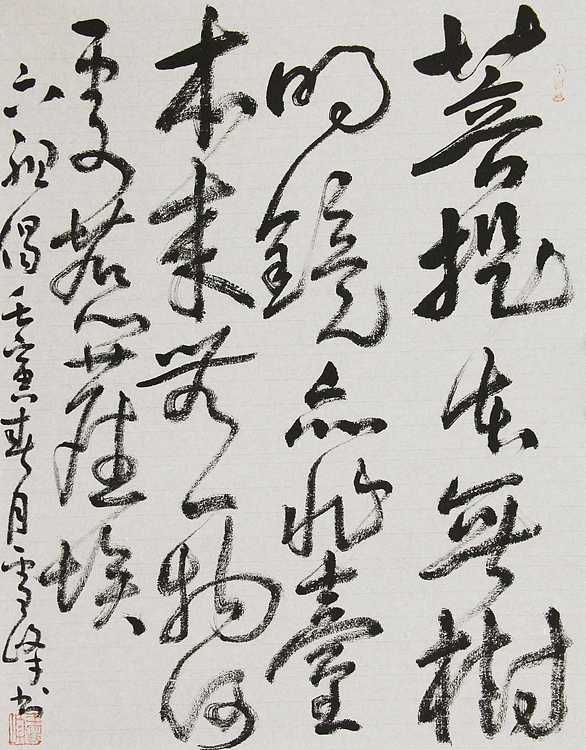 菩提本無樹
明鏡亦非臺
本來無一物何
處惹塵埃
六祖偈壬寅春月雪峰书